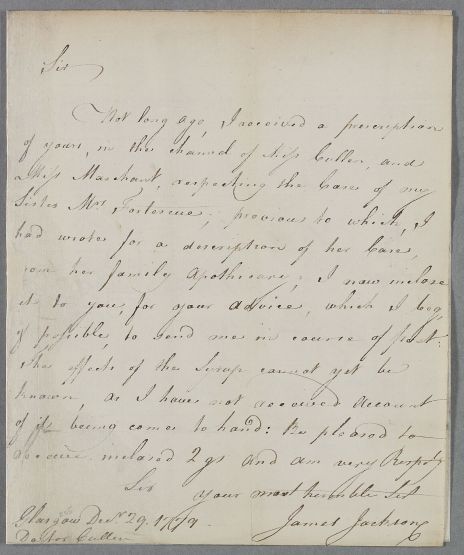 Sir
Not long ago, I received a prescription
of yours, in the channel of Miss Cullen, and
Miss Marchant, respecting the Case of my
Sister Mrs Fortescue; previous to which, I
had wrote for a description of her Case,
from her family Apothecary; I now inclose
it to you, for your advice, which I beg,
if possible, to send me in course of post:
the effects of the Syrup cannot yet be
known, as I have not received Account
of its being come to hand: Be pleased to
receive inclosed 2 gs and am very Respy
Sir
your most humble Sert
Glasgow Decr. 29. 1779. James Jackson
Doctor Cullen